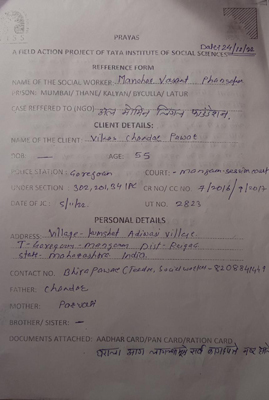 PRAYAS
Date: 24/12/22
A FIELD ACTION PROJECT OF TATA INSTITUTE OF SOCIAL SCIENCES
REFERENCE FORM
NAME OF THE SOCIAL WORKER: Manohar Vasant
PRISON: MUMBAI/ THANE/ KALYAN/ BYCULLA/ LATUR
CASE REFFERED TO (NGO)
CLIENT DETAILS:
NAME OF THE CLIENT - Vikas Chandar Pawar
DOB — AGE: 55
POLICE STATION: Goregaon COURT: - Mangaon-session court
UNDER SECTION: 302, 201, 34 IPC CR NO/ CC NO: 7/2016/
DATE OF JC 5/11/22. UT NO. 2823
PERSONAL DETAILS
ADDRESS: Village- Adiwasi village.
T- Goregaon- Mangaon Dist- Raigad
State- Maharashtra India.
CONTACT NO. Pawar
FATHER: Chandar
MOTHER: Parvati
BROTHER/ SISTER: —
DOCUMENTS ATTACHED: AADHAR CARD/PAN CARD/RATION CARD